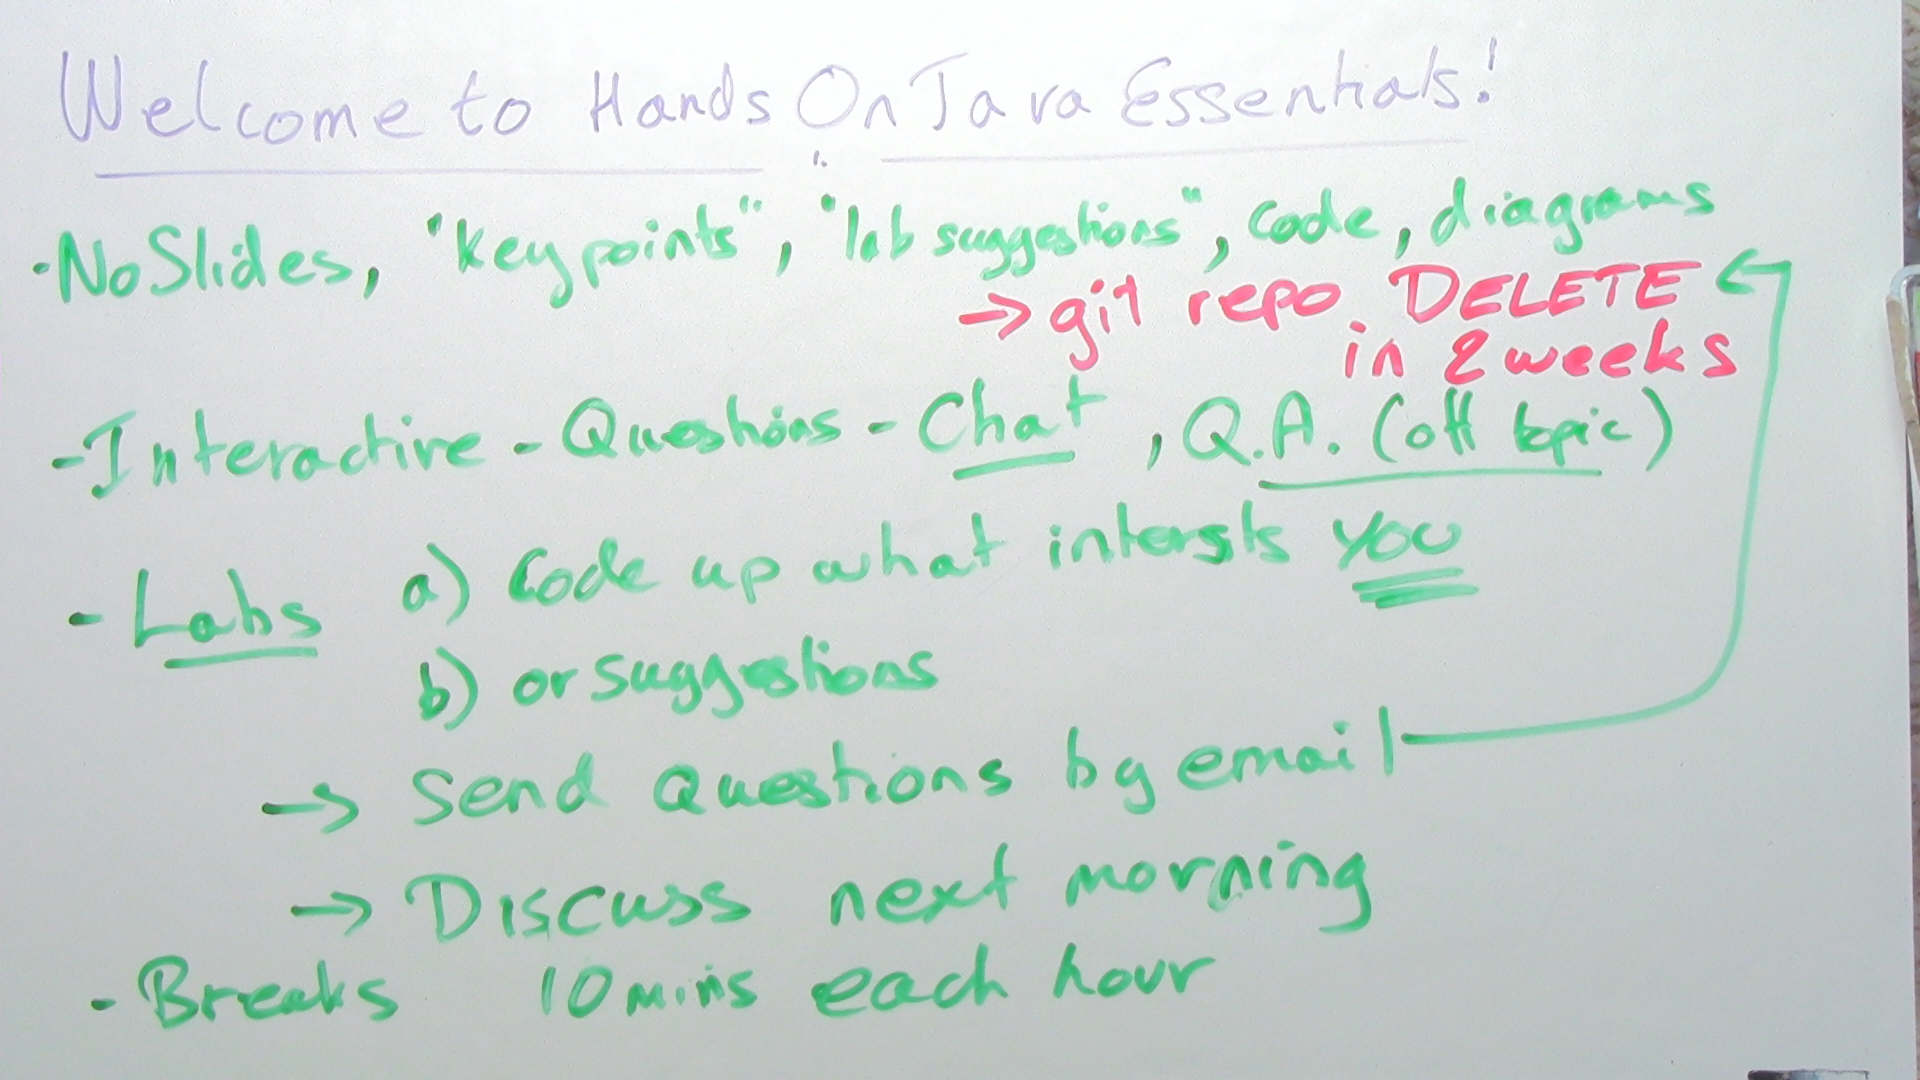 Welcome to Hands On Java Essentials!
· No Slides, "key points", "lab suggestions", code, diagrams
→ git repo DELETE
in 2 weeks
- Interactive - Questions - Chat, Q.A. (off topic)
- Labs a) Code up what intersts you
b) or suggestions
→ Send Questions by email
→ Discuss next morning
- Breaks 10 mins each hour